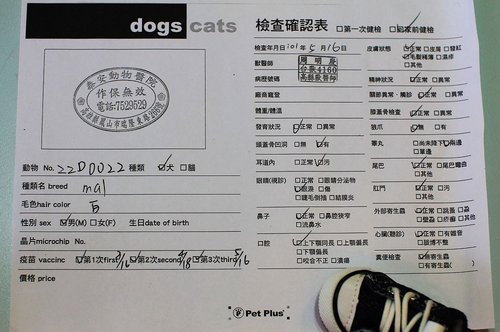 dogs cats
檢查確認表 □第一次健檢 ☑回家前健檢
泰安動物醫院
作保無效
電話:7529529
動物 No. 22D0022 種類 ☑犬 □貓
種類名 breed mal
毛色hair color 白
性別 sex ☑男(M) □女(F) 生日date of birth
晶片microchip No.
疫苗 vaccinc ☑第1次first 3/16 ☑第2次second 4/18 ☑第3次third 5/16
價格 price
檢查年月日 101 年 5 月 16 日
獸醫師
病歷號碼
廠商寵登
體重/體溫
發育狀況 ☑正常 □異常
頭蓋骨凹洞 ☑無 □有
耳道內 ☑正常 □污
眼睛(視診) □正常 □眼睛分泌物
☑淚濕 □傷
□睫毛倒插 □結膜炎
鼻子 ☑正常 □鼻腔狹窄
□流鼻水
口腔 ☑上下顎同長 □上顎偏長
□下顎偏長
□咬合不正 □潰瘍
皮膚狀態 ☑正常 □皮屑 □發紅
□毛髮稀薄 □濕疹
□其他
精神狀況 ☑正常 □異常
關節異常、觸診 ☑正常 □異常
膝蓋骨檢查 ☑正常 □異常
狼爪 ☑無 □有
睪丸 □尚未降下 ☑兩邊
□單邊
尾巴 ☑正常 □尾巴彎曲
□其他
肛門 ☑正常 □污
外部寄生蟲 ☑正常 □跳蚤 □蝨
□壁蝨 □疥癬 □其他
心臟(聽診) ☑正常 □有雜音
□脈博不整
糞便檢查 ☑無寄生蟲
□有寄生蟲( )
Pet Plus